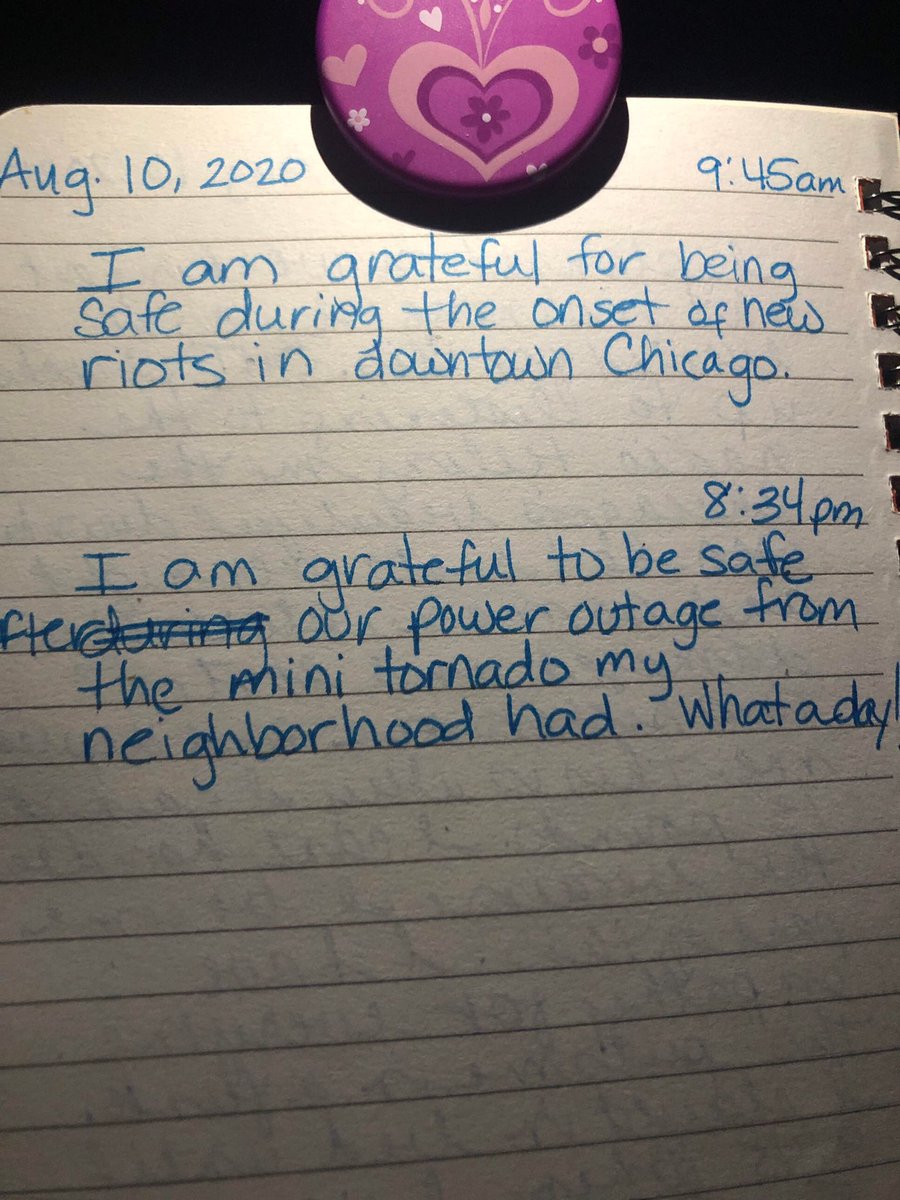 Aug. 10, 2020 9:45am
I am grateful for being
safe during the onset of new
riots in downtown Chicago.
8:34pm
I am grateful to be safe
fter during our power outage from
the mini tornado my
neighborhood had. What a day!